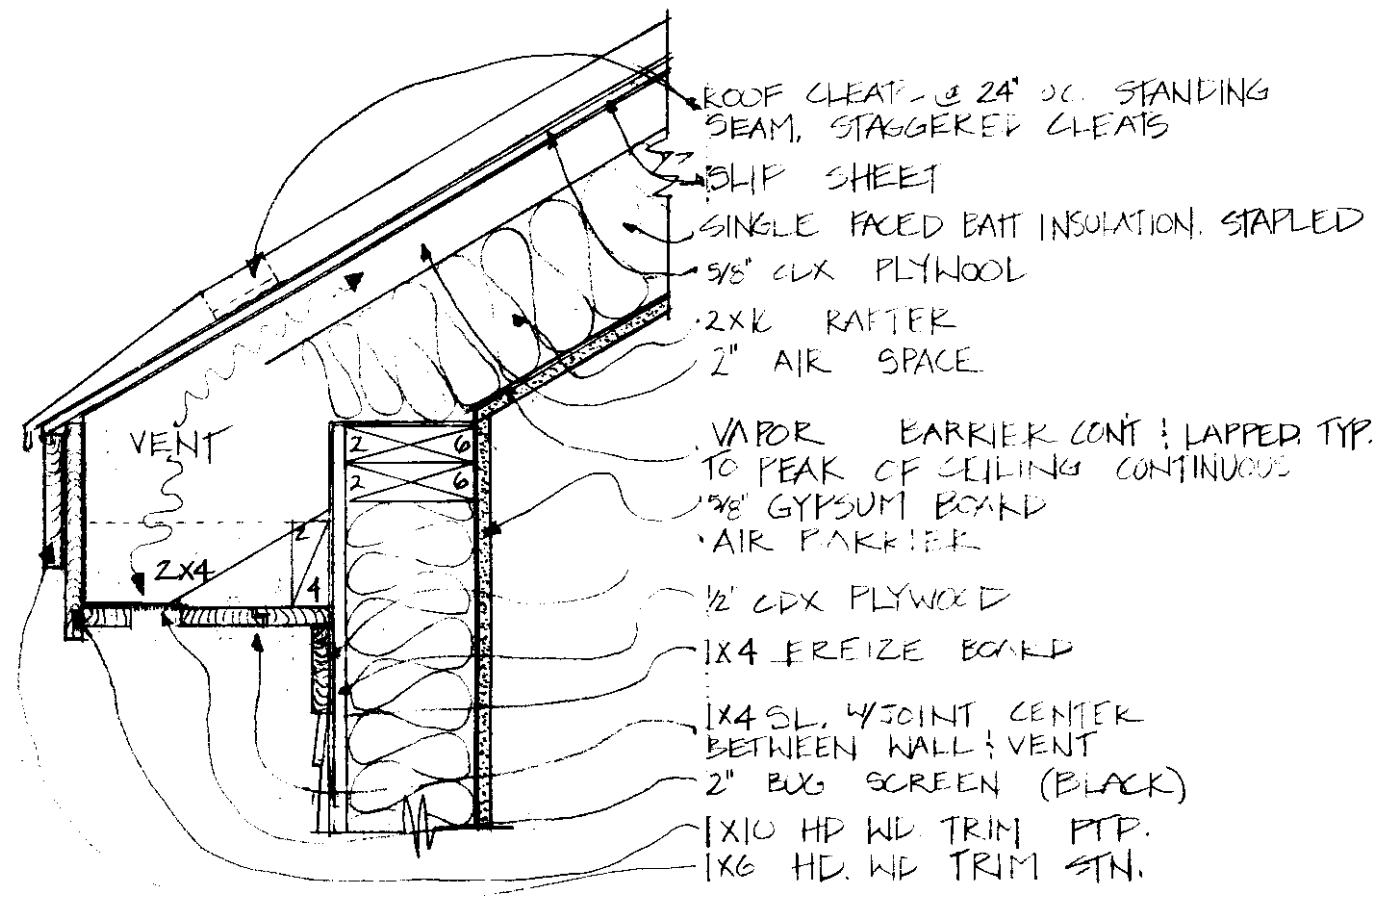 ROOF CLEATS @ 24" OC. STANDING
SEAM, STAGGERED CLEATS
SLIP SHEET
SINGLE FACED BATT INSULATION. STAPLED
5/8" CDX PLYWOOD
2X10 RAFTER
2" AIR SPACE
VAPOR BARRIER CONT & LAPPED. TYP.
TO PEAK OF CEILING CONTINUOUS
5/8" GYPSUM BOARD
AIR BARRIER
1/2" CDX PLYWOOD
1X4 FREIZE BOARD
1X4 SL. W/JOINT CENTER
BETWEEN WALL & VENT
2" BUG SCREEN (BLACK)
1X10 HD WD. TRIM PTD.
1X6 HD. WD TRIM STN.
VENT
2 6
2 6
2X4
2
4